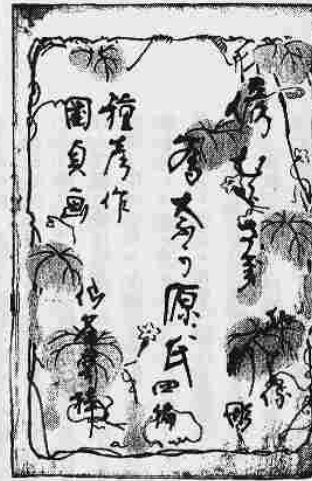 偐むらさき
奈可源氏四編
種彦作
國貞画
仙鶴堂梓